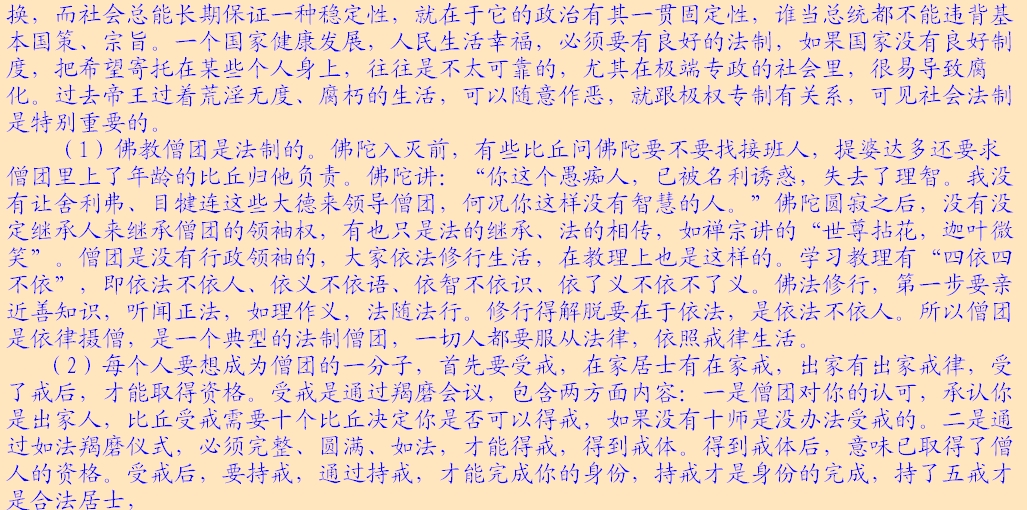 换，而社会总能长期保证一种稳定性，就在于它的政治有其一贯固定性，谁当总统都不能违背基
本国策、宗旨。一个国家健康发展，人民生活幸福，必须要有良好的法制，如果国家没有良好制
度，把希望寄托在某些个人身上，往往是不太可靠的，尤其在极端专政的社会里，很易导致腐
化。过去帝王过着荒淫无度、腐朽的生活，可以随意作恶，就跟极权专制有关系，可见社会法制
是特别重要的。
（1）佛教僧团是法制的。佛陀入灭前，有些比丘问佛陀要不要找接班人，提婆达多还要求
僧团里上了年龄的比丘归他负责。佛陀讲：“你这个愚痴人，已被名利诱惑，失去了理智。我没
有让舍利弗、目犍连这些大德来领导僧团，何况你这样没有智慧的人。”佛陀圆寂之后，没有没
定继承人来继承僧团的领袖权，有也只是法的继承、法的相传，如禅宗讲的“世尊拈花，迦叶微
笑”。僧团是没有行政领袖的，大家依法修行生活，在教理上也是这样的。学习教理有“四依四
不依”，即依法不依人、依义不依语、依智不依识、依了义不依不了义。佛法修行，第一步要亲
近善知识，听闻正法，如理作义，法随法行。修行得解脱要在于依法，是依法不依人。所以僧团
是依律摄僧，是一个典型的法制僧团，一切人都要服从法律，依照戒律生活。
（2）每个人要想成为僧团的一分子，首先要受戒，在家居士有在家戒，出家有出家戒律，受
了戒后，才能取得资格。受戒是通过羯磨会议，包含两方面内容：一是僧团对你的认可，承认你
是出家人，比丘受戒需要十个比丘决定你是否可以得戒，如果没有十师是没办法受戒的。二是通
过如法羯磨仪式，必须完整、圆满、如法，才能得戒，得到戒体。得到戒体后，意味已取得了僧
人的资格。受戒后，要持戒，通过持戒，才能完成你的身份，持戒才是身份的完成，持了五戒才
是合法居士，